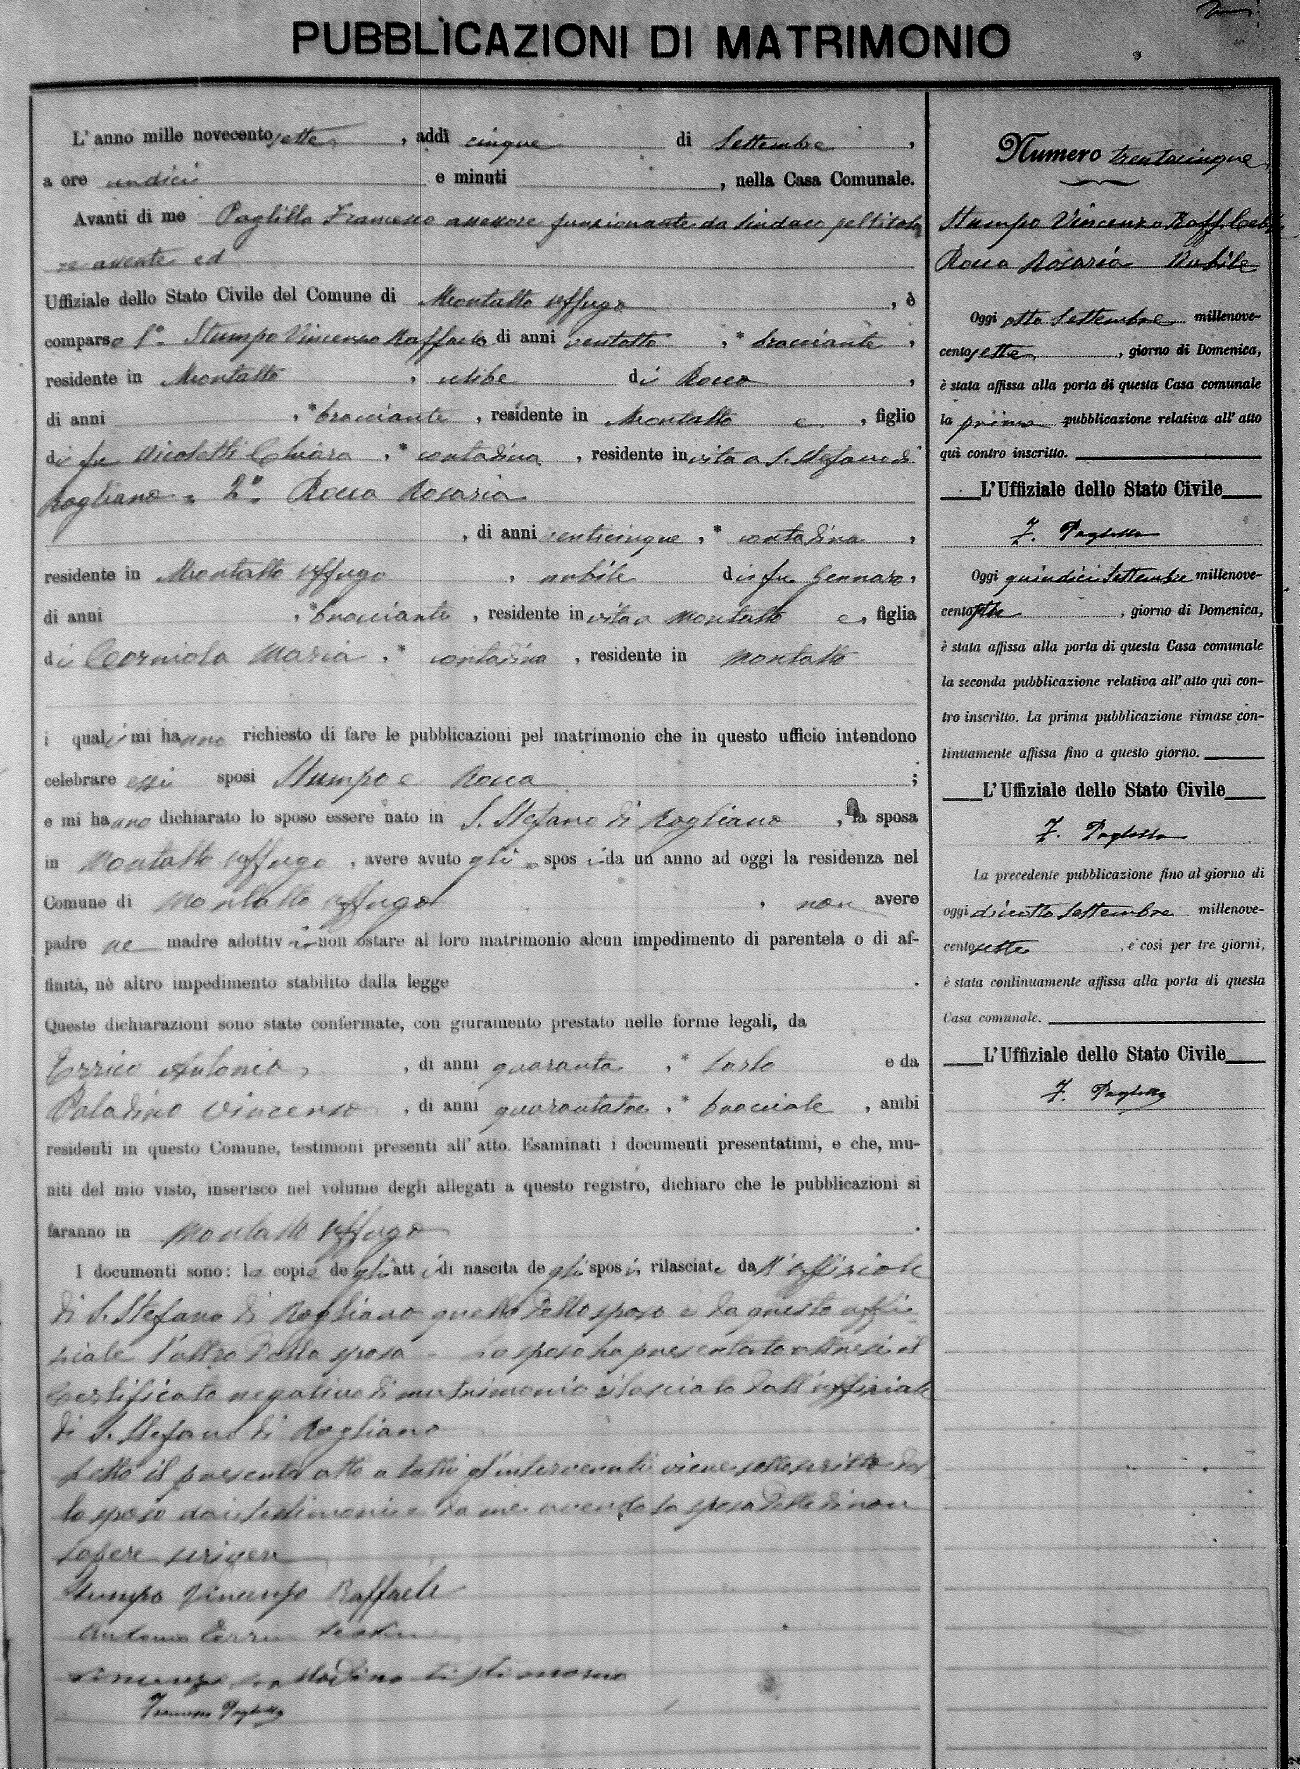 PUBBLICAZIONI DI MATRIMONIO
L'anno mille novecento sette, addì cinque di Settembre,
a ore undici e minuti , nella Casa Comunale.
Avanti di me Paglilla Francesco assessore funzionante da sindaco
ed
Uffiziale dello Stato Civile del Comune di Montalto Uffugo, è
comparso 1º Stumpo Vincenzo Raffaele di anni ventotto, * bracciante,
residente in Montalto, celibe di Rocco,
di anni , * bracciante, residente in Montalto e, figlio
di fu Nicoletti Chiara, * contadina, residente in vita a S. Stefano di
Rogliano. 2º Rocca Rosaria
, di anni venticinque, * contadina,
residente in Montalto Uffugo, nubile di fu Gennaro,
di anni , * bracciante, residente in vita a Montalto e, figlia
di Corniola Maria, * contadina, residente in Montalto
i quali mi hanno richiesto di fare le pubblicazioni pel matrimonio che in questo ufficio intendono
celebrare essi sposi Stumpo e Rocca ;
e mi hanno dichiarato lo sposo essere nato in S. Stefano di Rogliano, la sposa
in Montalto Uffugo, avere avuto gli sposi da un anno ad oggi la residenza nel
Comune di Montalto Uffugo, non avere
padre ne madre adottivi non ostare al loro matrimonio alcun impedimento di parentela o di af-
finità, nè altro impedimento stabilito dalla legge .
Queste dichiarazioni sono state confermate, con giuramento prestato nelle forme legali, da
Errico Antonio, di anni quaranta, * sarto e da
Paladino Vincenzo, di anni * bracciale, ambi
residenti in questo Comune, testimoni presenti all'atto. Esaminati i documenti presentatimi, e che, mu-
niti del mio visto, inserisco nel volume degli allegati a questo registro, dichiaro che le pubblicazioni si
faranno in Montalto Uffugo .
I documenti sono: le copie degli atti di nascita degli sposi rilasciate dall'uffiziale
di S. Stefano di Rogliano quello dello sposo e da questo uffi-
ziale l'altro della sposa - Lo sposo ha presentato altresì il
certificato negativo di matrimonio rilasciato dall'uffiziale
di S. Stefano di Rogliano
Letto il presente atto a tutti gl'intervenuti viene sottoscritto dal
lo sposo dai testimoni e da me avendo la sposa detto di non
sapere scrivere
Stumpo Vincenzo Raffaele
Antonio Errico
Vincenzo Paladino testimonio
Francesco Paglilla
Numero trentacinque
Stumpo Vincenzo Raff. Celibe
Rocca Rosaria Nubile
Oggi otto Settembre millenove-
cento sette, giorno di Domenica,
è stata affissa alla porta di questa Casa comunale
la prima pubblicazione relativa all'atto
quì contro inscritto.
L'Uffiziale dello Stato Civile
F. Paglilla
Oggi quindici Settembre millenove-
cento sette, giorno di Domenica,
è stata affissa alla porta di questa Casa comunale
la seconda pubblicazione relativa all'atto quì con-
tro inscritto. La prima pubblicazione rimase con-
tinuamente affissa fino a questo giorno.
L'Uffiziale dello Stato Civile
F. Paglilla
La precedente pubblicazione fino al giorno di
oggi diciotto Settembre millenove-
cento sette, e così per tre giorni,
è stata continuamente affissa alla porta di questa
Casa comunale.
L'Uffiziale dello Stato Civile
F. Paglilla